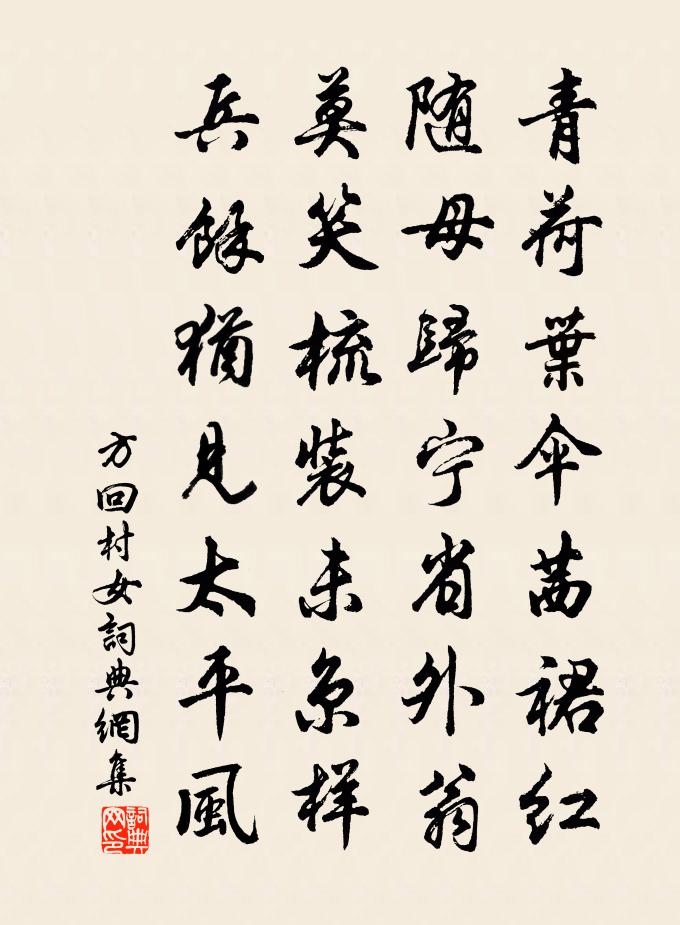 青荷葉伞茜裙红
随母歸宁省外翁
莫笑梳裝未京样
兵餘猶見太平風
方回村女詞典網集
詞典网印